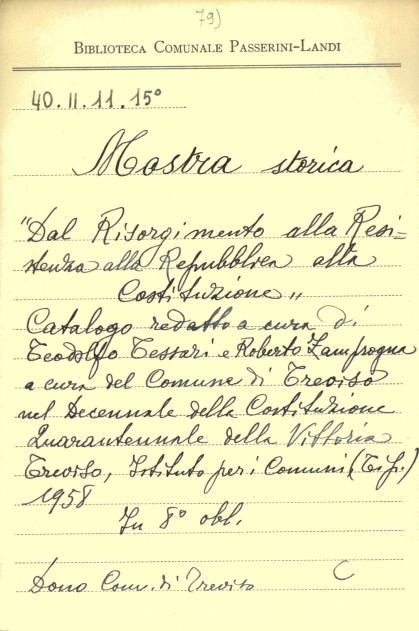 79)
BIBLIOTECA COMUNALE PASSERINI-LANDI
40.II.11.15°
Mostra storica
"Dal Risorgimento alla Resi=
stenza alla Repubblica alla
Costituzione"
Catalogo redatto a cura di
Teodolfo Tessari e Roberto Zamprogna
a cura del Comune di Treviso
nel Decennale della Costituzione
Quarantennale della Vittoria
Treviso, Istituto per i Comuni (Tip.)
1958
In 8° obl.
Dono Com. di Treviso C